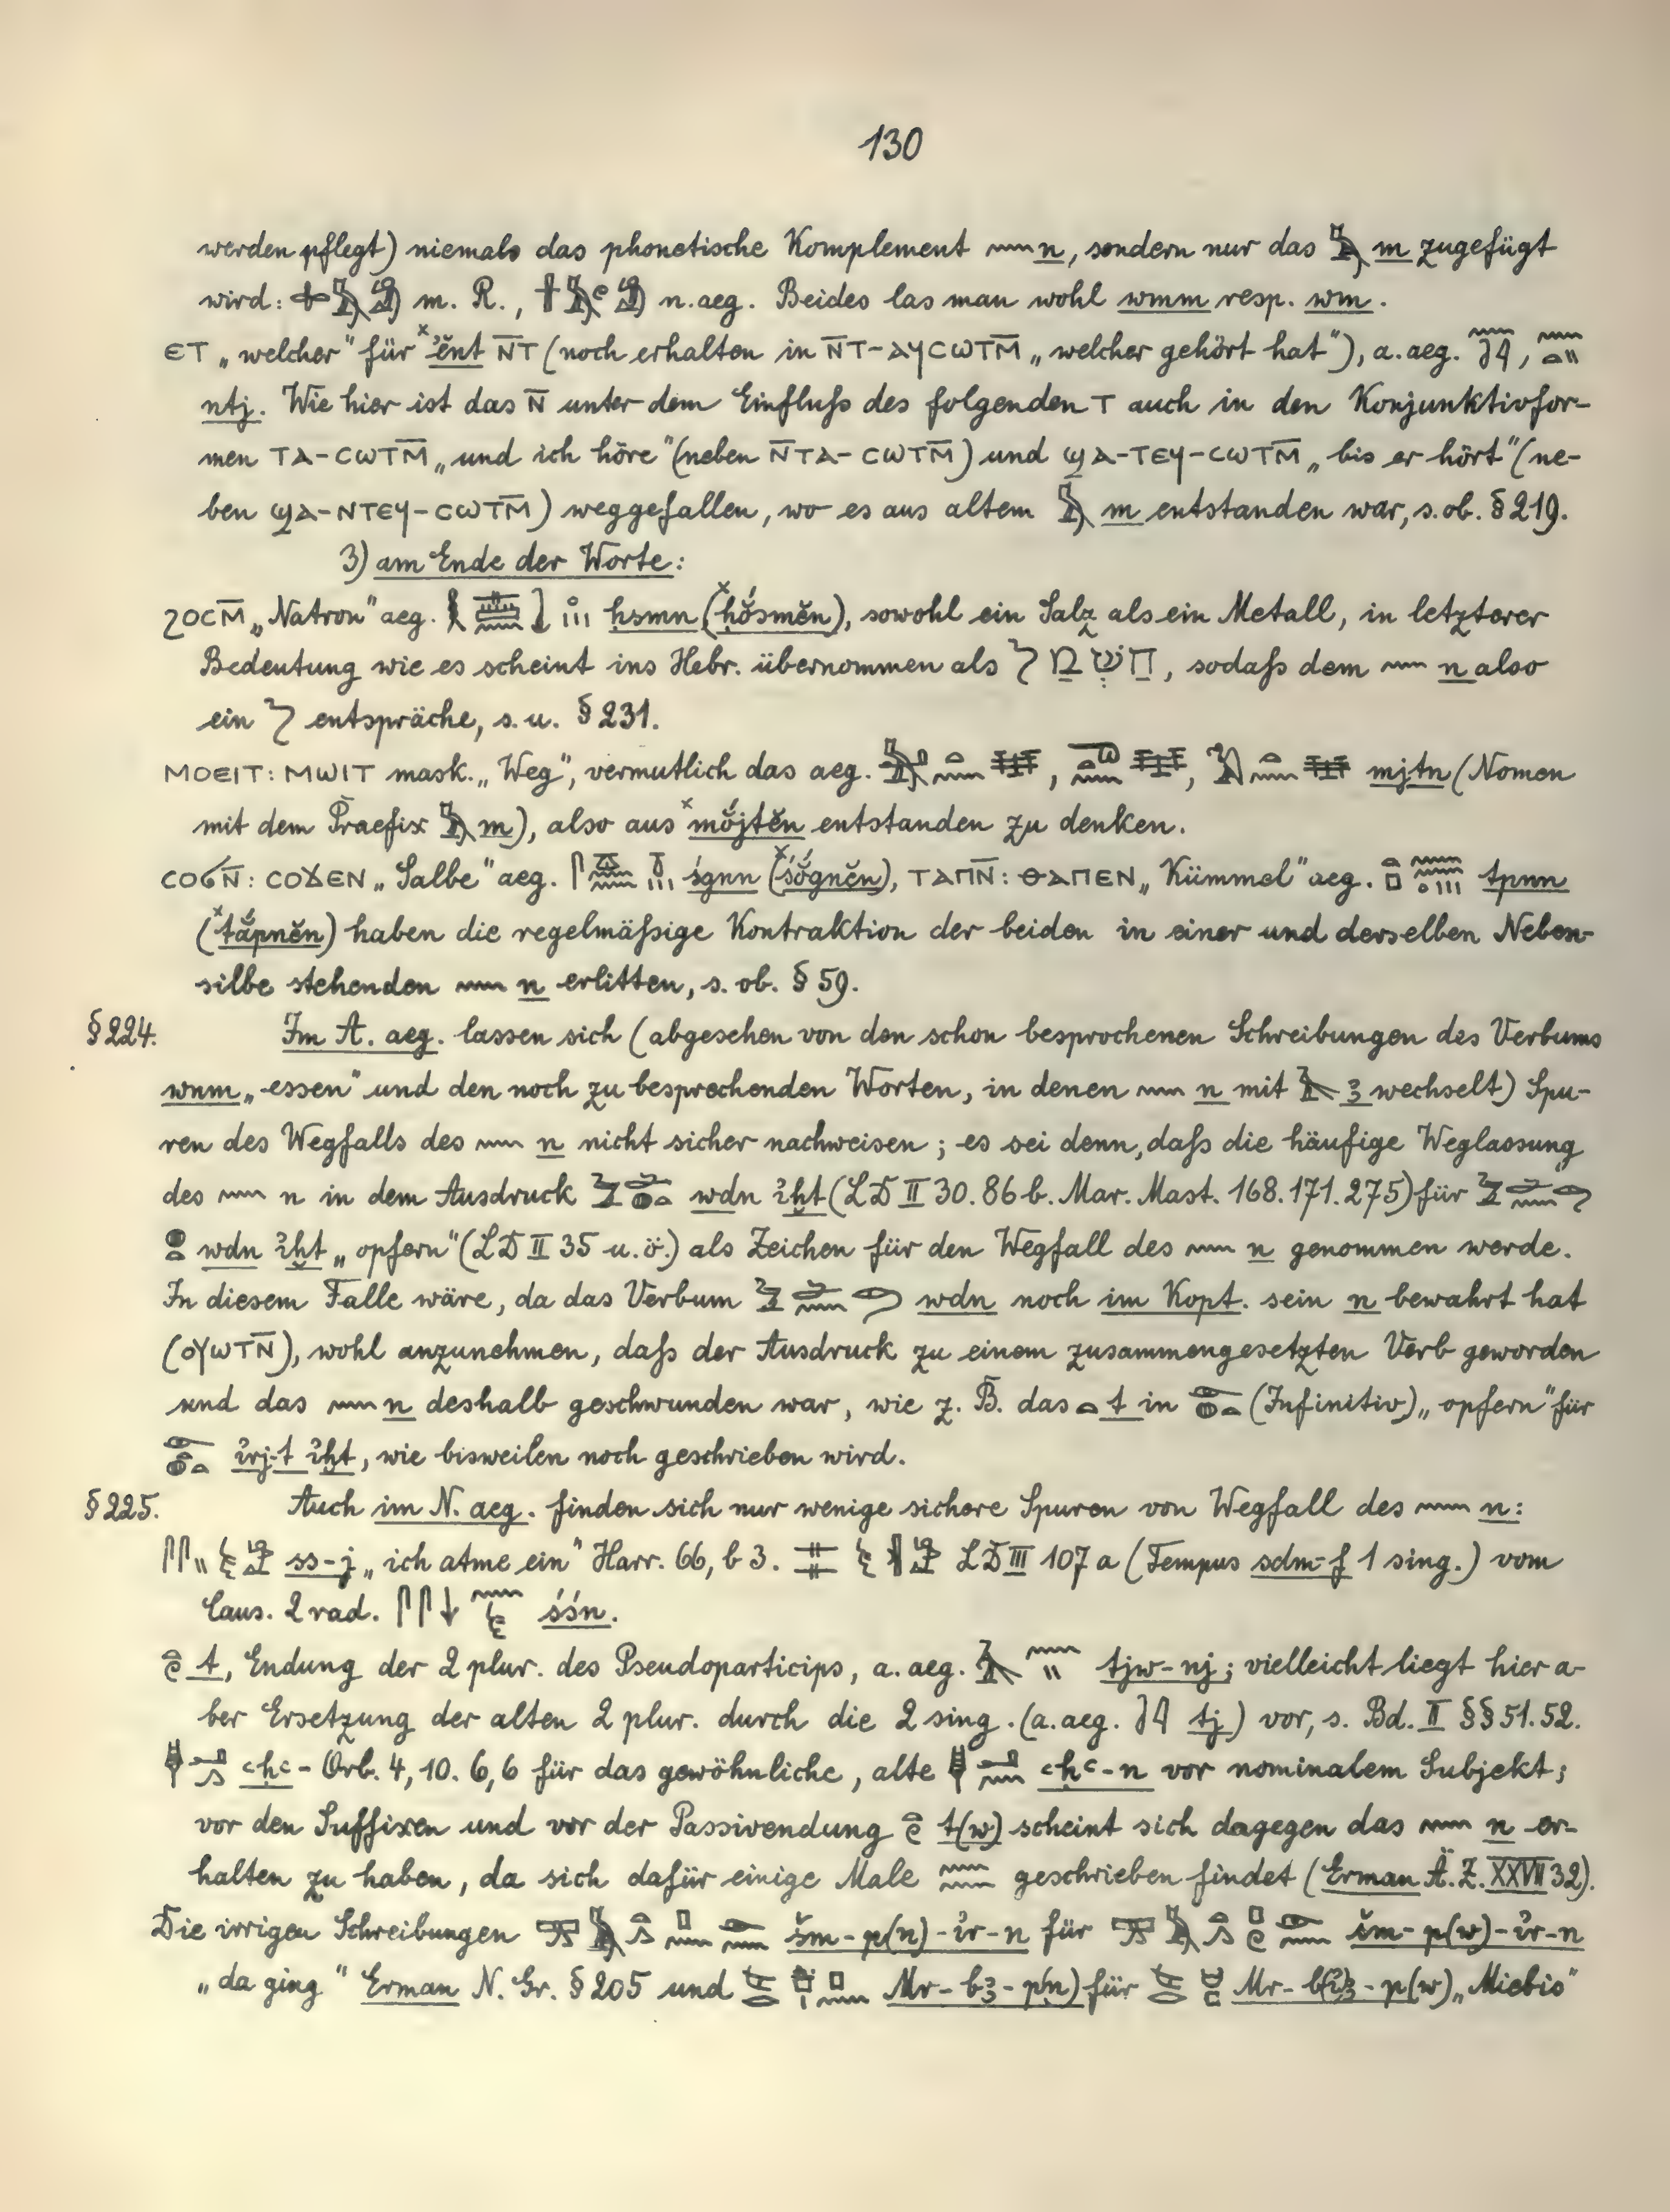 130
werden pflegt) niemals das phonetische Komplement 𓈖 n, sondern nur das 𓅓 m zugefügt
wird: m. R., n. aeg. Beides las man wohl wmm resp. wm.
ⲉⲧ „welcher“ für ˣʾĕnt ⲛ̄ⲧ (noch erhalten in ⲛ̄ⲧ-ⲁϥⲥⲱⲧⲙ̄ „welcher gehört hat“), a. aeg.
ntj. Wie hier ist das ⲛ̄ unter dem Einfluß des folgenden ⲧ auch in den Konjunktivfor-
men ⲧⲁ-ⲥⲱⲧⲙ̄ „und ich höre“ (neben ⲛ̄ⲧⲁ-ⲥⲱⲧⲙ̄) und ϣⲁ-ⲧⲉϥ-ⲥⲱⲧⲙ̄ „bis er hört“ (ne-
ben ϣⲁ-ⲛⲧⲉϥ-ⲥⲱⲧⲙ̄) weggefallen, wo es aus altem 𓅓 m entstanden war, s. ob. § 219.
3) am Ende der Worte:
ϩⲟⲥⲙ̄ „Natron“ aeg. ḥsmn (ˣḥŏ́smĕn), sowohl ein Salz als ein Metall, in letzterer
Bedeutung wie es scheint ins Hebr. übernommen als , sodaß dem 𓈖 n also
ein entspräche, s. u. § 231.
ⲙⲟⲉⲓⲧ: ⲙⲱⲓⲧ mask. „Weg“, vermutlich das aeg. mjtn (Nomen
mit dem Praefix 𓅓 m), also aus ˣmŏ́jtĕn entstanden zu denken.
ⲥⲟϭⲛ̄: ⲥⲟϫⲉⲛ „Salbe“ aeg. śgnn (ˣśŏ́gnĕn), ⲧⲁⲡⲛ̄: ⲑⲁⲡⲉⲛ „Kümmel“ aeg. tpnn
(ˣtắpnĕn) haben die regelmäßige Kontraktion der beiden in einer und derselben Neben-
silbe stehenden 𓈖 n erlitten, s. ob. § 59.
§ 224. Im A. aeg. lassen sich (abgesehen von den schon besprochenen Schreibungen des Verbums
wnm „essen“ und den noch zu besprechenden Worten, in denen 𓈖 n mit 𓄿 ꜣ wechselt) Spu-
ren des Wegfalls des 𓈖 n nicht sicher nachweisen; es sei denn, daß die häufige Weglassung
des 𓈖 n in dem Ausdruck wdn ı͗ḫt (LD II 30. 86 b. Mar. Mast. 168. 171. 275) für
wdn ı͗ḫt „opfern“ (LD II 35 u. ö.) als Zeichen für den Wegfall des 𓈖 n genommen werde.
In diesem Falle wäre, da das Verbum wdn noch im Kopt. sein n bewahrt hat
(ⲟⲩⲱⲧⲛ̄), wohl anzunehmen, daß der Ausdruck zu einem zusammengesetzten Verb geworden
und das 𓈖 n deshalb geschwunden war, wie z. B. das 𓏏 t in (Infinitiv) „opfern“ für
ı͗rj-t ı͗ḫt, wie bisweilen noch geschrieben wird.
§ 225. Auch im N. aeg. finden sich nur wenige sichere Spuren von Wegfall des 𓈖 n:
ss-j „ich atme ein“ Harr. 66, b 3. LD III 107 a (Tempus sdm-f 1 sing.) vom
Caus. 2 rad. śśn.
t, Endung der 2 plur. des Pseudoparticips, a. aeg. tjw-nj; vielleicht liegt hier a-
ber Ersetzung der alten 2 plur. durch die 2 sing. (a. aeg. tj) vor, s. Bd. II §§ 51. 52.
ꜥḥꜥ- Orb. 4, 10. 6, 6 für das gewöhnliche, alte ꜥḥꜥ-n vor nominalem Subjekt;
vor den Suffixen und vor der Passivendung t(w) scheint sich dagegen das 𓈖 n er-
halten zu haben, da sich dafür einige Male geschrieben findet (Erman Ä. Z. XXVII 32).
Die irrigen Schreibungen šm-p(n)-ı͗r-n für šm-p(w)-ı͗r-n
„da ging“ Erman N. Gr. § 205 und Mr-bꜣ-p(n) für Mr-b(ı͗)ꜣ-p(w) „Miebis“